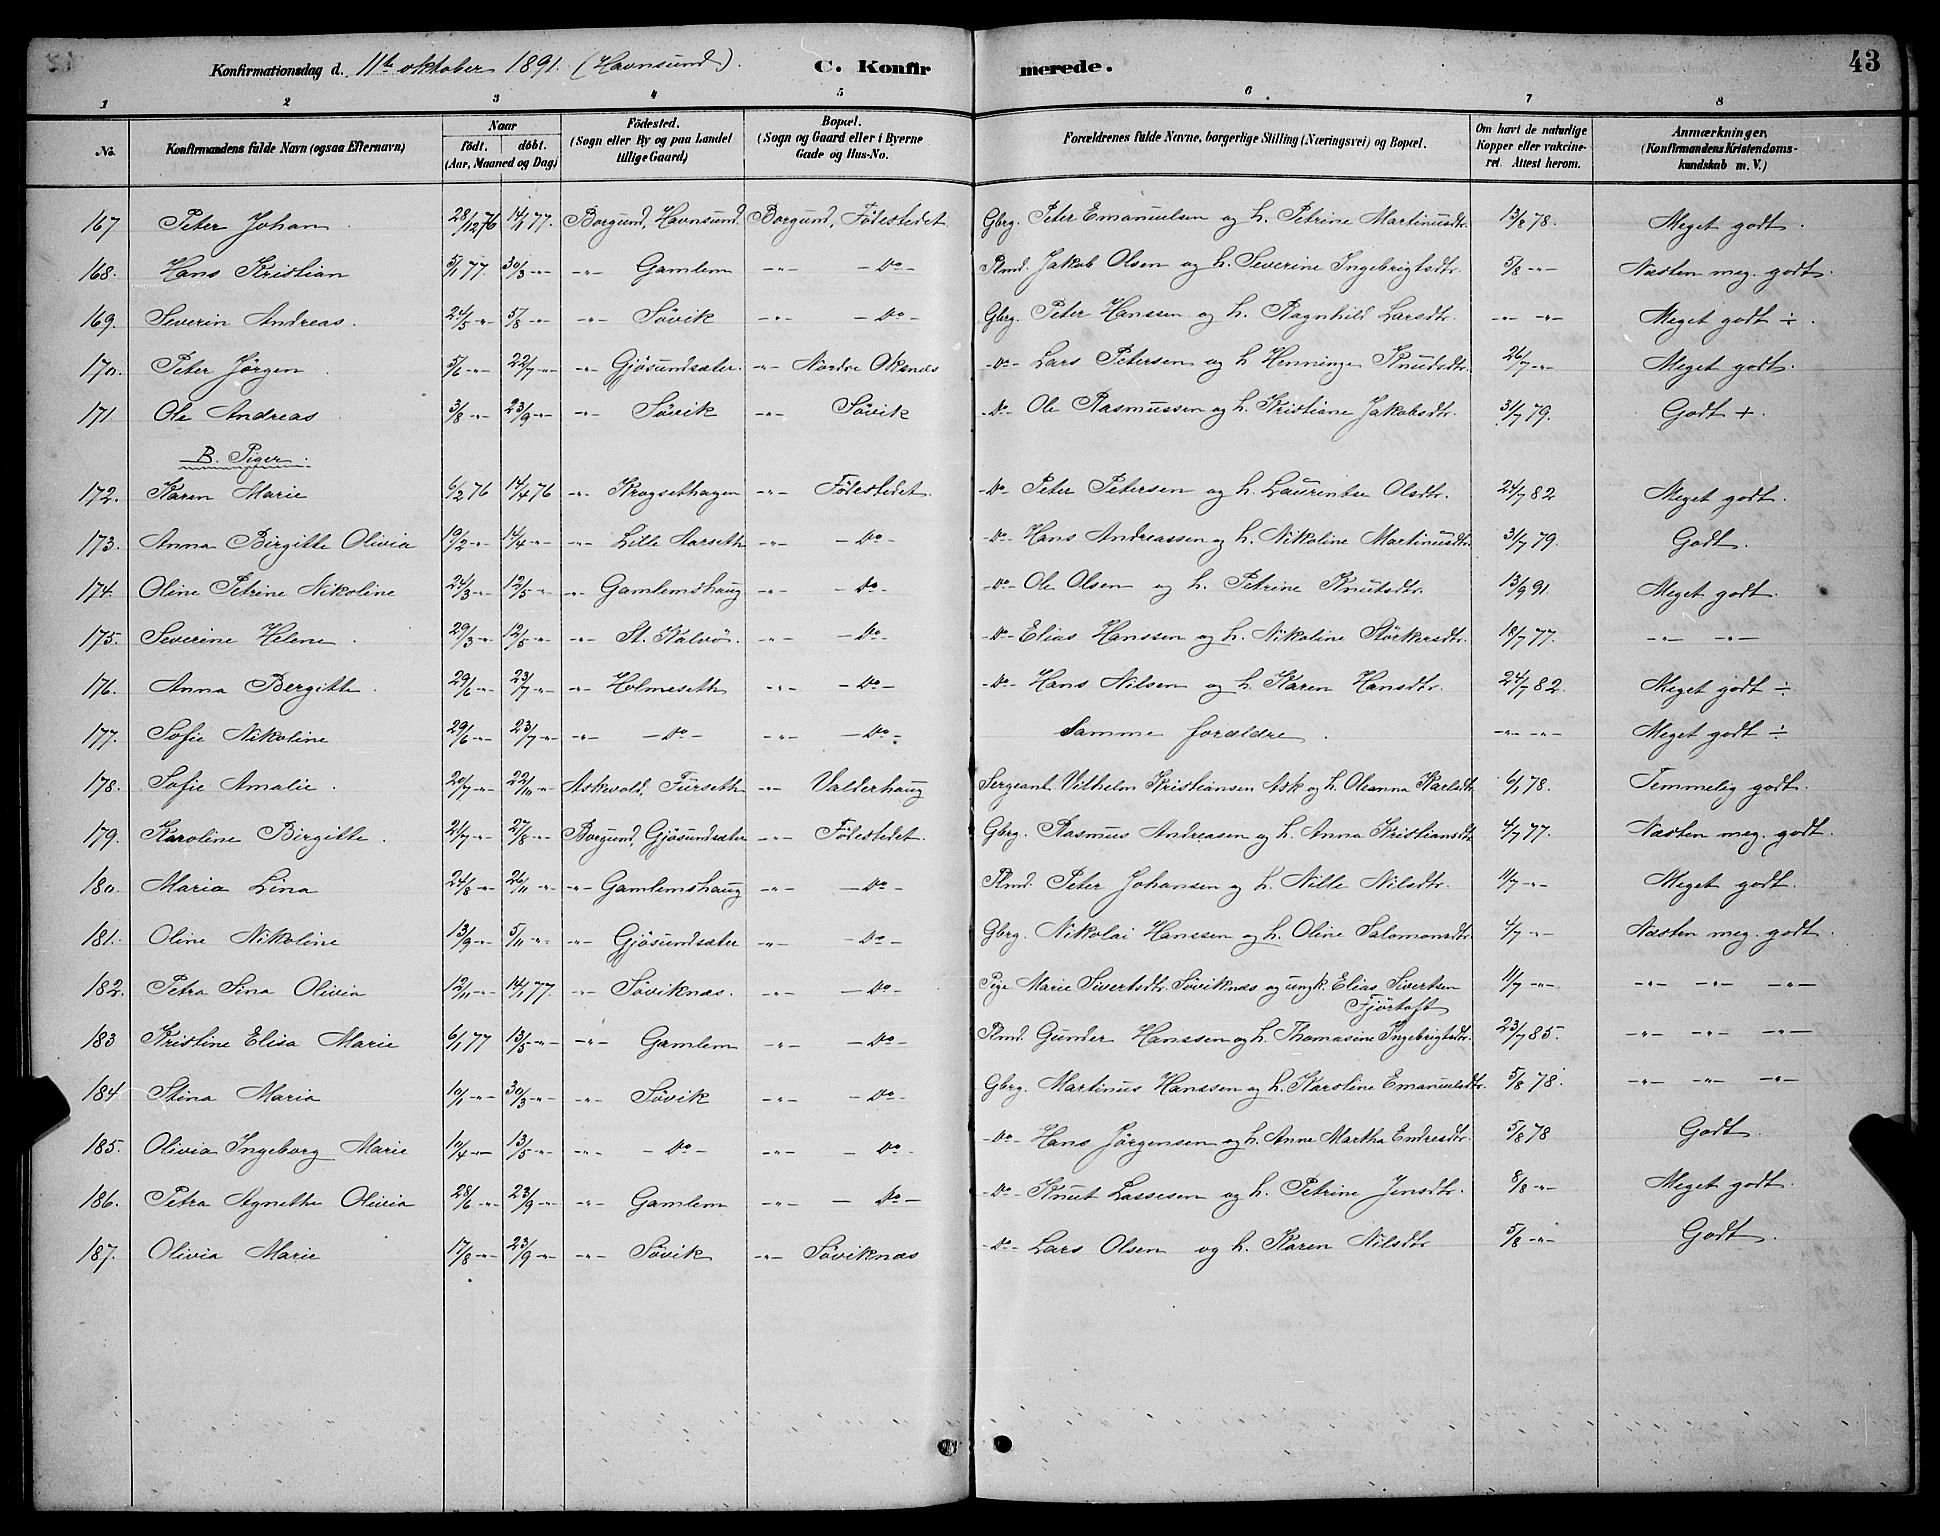 Konfirmationsdag d. 11te oktober 1891. (Havnsund). C. Konfirmerede. 43
1 2 3 4 5 6 7 8
No. Konfirmandens fulde Navn (ogsaa Efternavn) Naar födt. döbt. (Aar, Maaned og Dag) Födested. (Sogn eller By og paa Landet tillige Gaard) Bopæl. (Sogn og Gaard eller i Byerne Gade og Hus-No. Forældrenes fulde Navne, borgerlige Stilling (Næringsvei) og Bopæl. Om havt de naturlige Kopper eller vakcineret. Attest herom. Anmærkninger. (Konfirmandens Kristendomskundskab m. V.)
167 Peter Johan. 28/12 76 14/1 77. Borgund, Havnsund. Borgund, Födestedet Gbrg. Peter Emanuelsen og h. Petrine Martinusdtr. 13/8 78. Meget godt.
168. Hans Kristian 5/1 77. 30/3 -"- -"- Gamlem -"- -Do- Plmd. Jakob Olsen og h. Severine Ingebrigtsdtr. 5/8 -"- Næsten meg. godt.
169. Severin Andreas. 24/5 -"- 5/8 -"- -"- Sövik -"- -Do- Gbrg. Peter Hanssen og h. Ragnhild Larsdtr. -"- -"- Meget godt ÷.
170. Peter Jörgen. 5/6 -"- 22/7 -"- -"- Gjösundsæter. -"- Nordre Oksnæs -Do- Lars Petersen og h. Henninge Knudsdtr. 26/7 -"- Meget godt.
171 Ole Andreas. 3/8 -"- 23/9 -"- -"- Sövik -"- Sövik -Do- Ole Rasmussen og h. Kristiane Jakobsdtr. 31/7 79. Godt +.
B. Piger.
172. Karen Marie 6/2 76 14/4 76 -"- Krogsethagen -"- Födestedet. -Do- Peter Petersen og h. Laurentse Olsdtr. 24/7 82 Meget godt.
173. Anna Birgitte Olivia 19/2 -"- 14/4 -"- -"- Lille Aarseth -"- -Do- -Do- Hans Andreassen og h. Nikoline Martinusdtr. 31/7 79. Godt.
174. Oline Petrine Nikoline 24/3 -"- 12/5 -"- -"- Gamlemshaug -"- -Do- -Do- Ole Olsen og h. Petrine Knutsdtr. 13/9 91. Meget godt.
175. Severine Helene. 29/3 -"- 12/5 -"- -"- St. Kalvö. -"- -Do- -Do- Elias Hanssen og h. Nikoline Störkersdtr. 18/7 77. -"- -"-
176. Anna Bergitte. 29/6 -"- 23/7 -"- -"- Holmeseth -"- -Do- -Do- Hans Nilsen og h. Karen Hansdtr. 24/7 82. Meget godt ÷
177. Sofie Nikoline 29/6 -"- 23/7 -"- -"- -Do- -"- -Do- Samme forældre. -"- -"- Meget godt ÷
178. Sofie Amalie. 20/7 -"- 22/10 -"- Askevold, Furseth -"- Valderhaug Sergeant Vilhelm Kristiansen Ask og h. Oleanna Karlsdtr 6/1 78. Temmelig godt.
179. Karoline Birgitte. 24/7 -"- 27/8 -"- Borgund, Gjösundsæter -"- Födestedet. Gbrg. Rasmus Andreasen og h. Anna Kristiansdtr 4/7 77. Næsten meg. godt.
180. Maria Lina 24/8 -"- 26/11 -"- -"- Gamlemshaug -"- -Do- Plmd. Peter Johansen og h. Nille Nilsdtr. 11/7 -"- Meget godt.
181. Oline Nikoline 13/9 -"- 5/11 -"- -"- Gjösundsæter -"- -Do- Gbrg. Nikolai Hanssen og h. Oline Salomonsdtr 4/7 -"- Næsten meg. godt.
182. Petra Sina Olivia 12/11 -"- 14/1 77. -"- Söviknæs. -"- -Do- Pige Marie Sivertsdtr. Söviknæs og ungk. Elias Sivertsen Fjörtoft 11/7 -"- -"- -"- -"-
183 Kristine Elisa Marie 6/1 77 13/5 -"- -"- Gamlem -"- -Do- Plmd. Gunder Hanssen og h. Thomasine Ingebrigtsdtr. 23/7 85. -"- -"- -"-
184 Stina Maria 10/1 -"- 30/3 -"- -"- Sövik -"- Do- Gbrg. Martinus Hanssen og h. Karoline Emanuelsdtr. 5/8 78. -"- -"- -"-
185. Olivia Ingeborg Marie 10/4 -"- 13/5 -"- -"- -Do- -"- -Do- -Do- Hans Jörgensen og h. Anne Martha Endresdtr. 5/8 78 Godt.
186. Petra Agnethe Olivia 28/6 -"- 23/9 -"- -"- Gamlem -"- -Do- -Do- Knut Lassesen og h. Petrine Jensdtr. 8/8 -"- Meget godt.
187. Olivia Marie 17/8 -"- 23/9 -"- -"- Sövik -"- Söviknæs -Do- Lars Olsen og h. Karen Nilsdtr 5/8 -"- Godt.